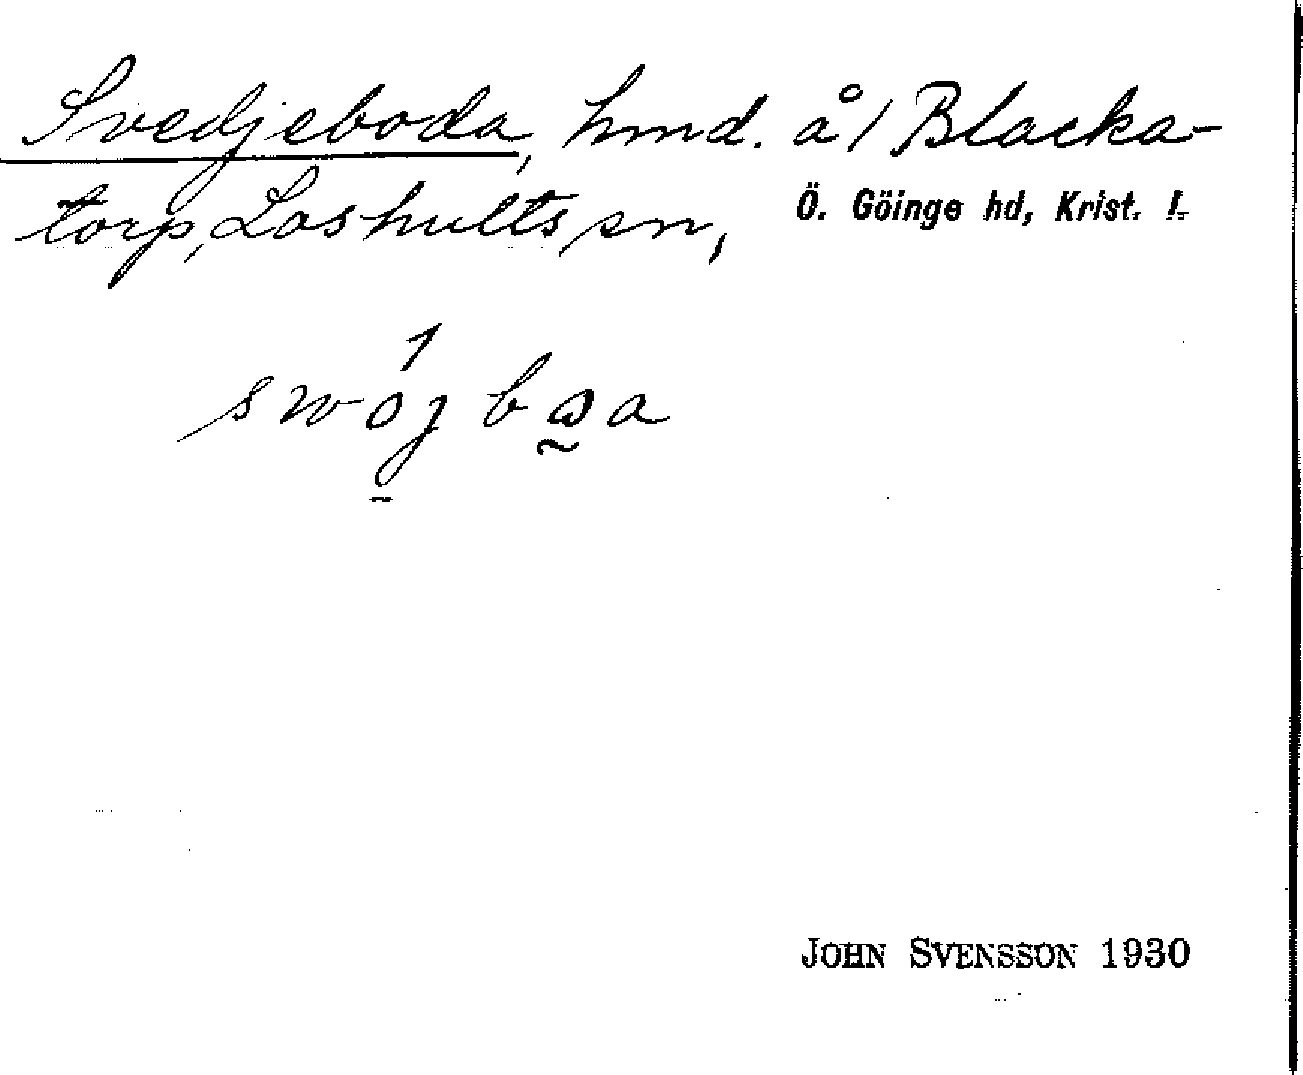 Svedjeboda, hmd. å 1 Blacka-
torp, Loshults sn,
Ö. Göinge hd, Krist. l.
JOHN SVENSSON 1930